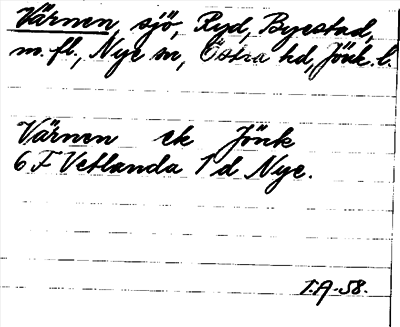 Värnen sjö, Ryd, Byestad,
m. fl., Nye sn, Östra hd, Jönk. l.
Värnen ek Jönk
6 F Vetlanda 1 d Nye.
I.A.-58.